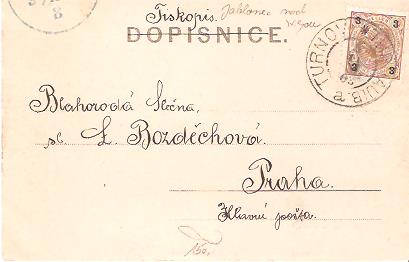 Tiskopis. Jablonec nad
DOPISNICE.
TURNOV
3 3
Blahorodá Slečna,
sl. L. Bozděchová.
Praha.
Hlavní pošta.
150,